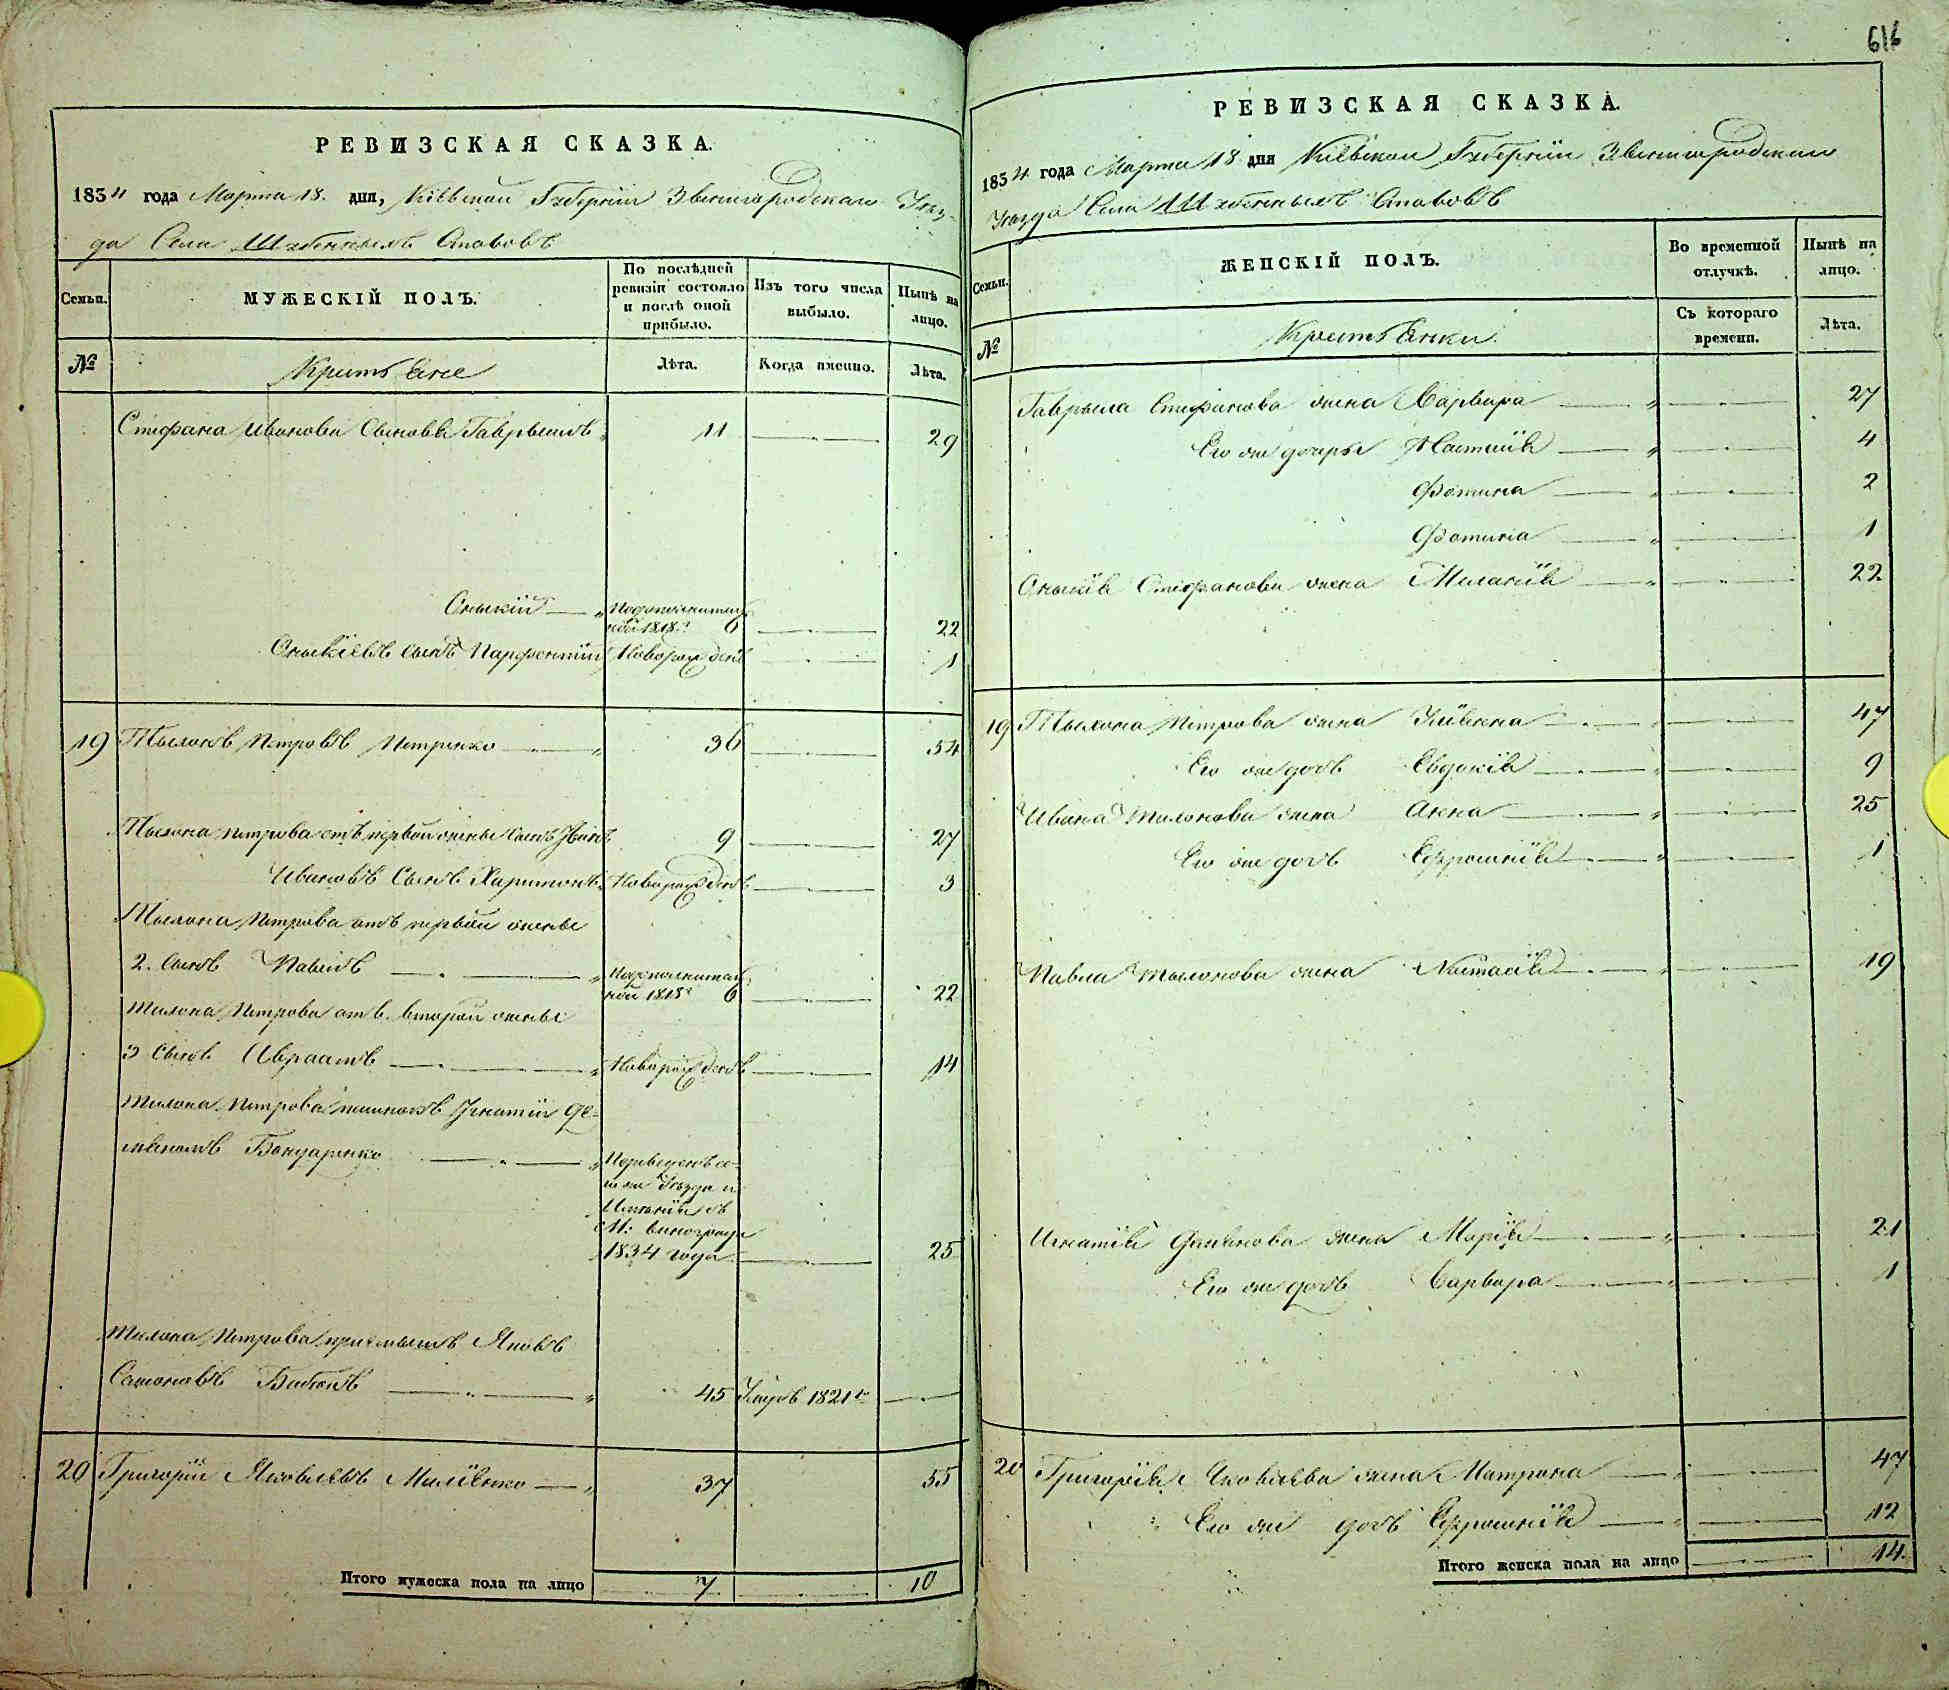 616
РЕВИЗСКАЯ СКАЗКА.
1834 года Марта 18. дня, Кіевской Губерніи Звенигородскаго Уез-
да Села Шубенныхъ Ставовъ
Семьи.
МУЖЕСКІЙ ПОЛЪ.
По послѣдней ревизіи состояло и послѣ оной прибыло.
Изъ того числа выбыло.
Нынѣ на лицо.
№
Крестьяне
Лѣта.
Когда имянно.
Лѣта.
Стефана Иванова Сыновья Гаврыилъ 11 29
Оныкій Подополнитель-
ной 1818г 6 22
Оныкіевъ сынъ Парфентій Новорожденъ 1
19 Тыхонъ Петровъ Петренко 36 54
Тыхона Петрова отъ первой жены сынъ Иванъ 9 27
Ивановъ Сынъ Харитонъ Новорожденъ 3
Тыхона Петрова отъ первой жены
2. сынъ Павелъ Подополнитель-
ной 1818г 6 22
Тихона Петрова отъ второй жены
3 сынъ Авраамъ Новорожденъ 14
Тихона Петрова Игнатій Де-
мяновъ Бондаренко Переведенъ се-
го же Уезда и
Имѣнія съ
М: Винограда
1834 года 25
Тихона Петрова приемышъ Яковъ
45 Умеръ 1821г
20 Григорій Яковлевъ 37 55
Итого мужеска пола на лицо 7 10
РЕВИЗСКАЯ СКАЗКА.
1834 года Марта 18 дня Кіевской Губерніи Звенигородскаго
Уезда Села Шубенныхъ Ставовъ
Семьи.
ЖЕНСКІЙ ПОЛЪ.
Во временной отлучкѣ.
Нынѣ на лицо.
№
Крестьянки
Съ котораго времени.
Лѣта.
Гаврыла Стефанова жена Варвара 27
Его же дочеры Настасія 4
Фотина 2
Фотина 1
Оныкія Стефанова жена Меланія 22
19 Тыхона Петрова жена 47
Его же дочь Евдокія 9
Ивана Тихонова жена Анна 25
Его же дочь Ефросинія 1
Павла Тыхонова жена Настасія 19
Игнатія Демянова жена Марія 21
Его же дочь Варвара 1
20 Григорія Яковлева жена Матрона 47
Его же дочь Ефросинія 12
Итого женска пола на лицо 14